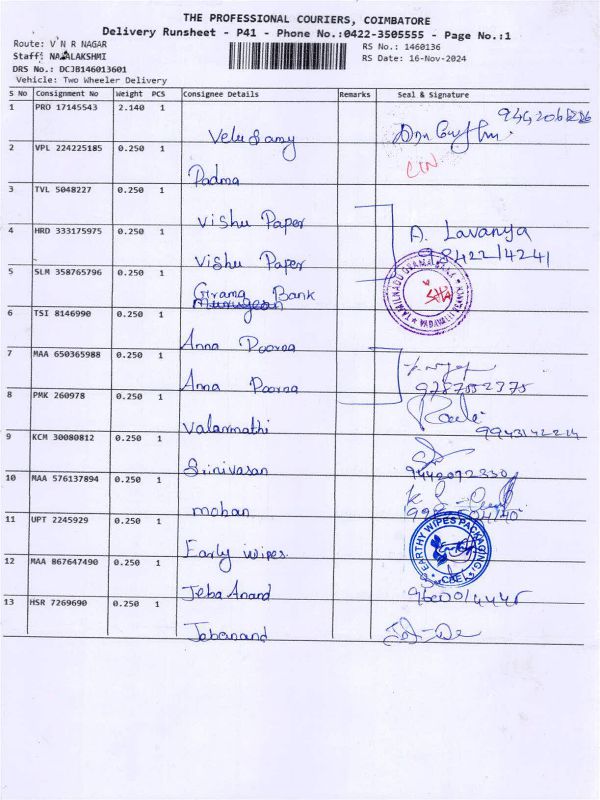 THE PROFESSIONAL COURIERS, COIMBATORE
Delivery Runsheet - P41 - Phone No.:0422-3505555 - Page No.:1
Route: V N R NAGAR
RS No.: 1460136
Staff: NAJALAKSHMI
RS Date: 16-Nov-2024
DRS No.: DCJB146013601
Vehicle: Two Wheeler Delivery
S No Consignment No Weight PCS Consignee Details Remarks Seal & Signature
1 PRO 17145543 2.140 1 Velusamy
2 VPL 224225185 0.250 1 Padma
3 TVL 5048227 0.250 1 Vishu Paper
4 HRD 333175975 0.250 1 Vishu Paper A. Lavanya
9842214241
5 SLM 358765796 0.250 1 Grama Bank
TAMILNADU GRAMA BANK VADAVALLI
6 TSI 8146990 0.250 1 Anna Poorna
7 MAA 650365988 0.250 1 Anna Poorna
9787552375
8 PMK 260978 0.250 1 Valarmathi
9943142214
9 KCM 30080812 0.250 1 Srinivasan
10 MAA 576137894 0.250 1 mohan
11 UPT 2245929 0.250 1 Early wipes.
EARTHY WIPES PACKAGING, CBE
12 MAA 867647490 0.250 1 Jeba Anand
9600014445
13 HSR 7269690 0.250 1 Jebanand